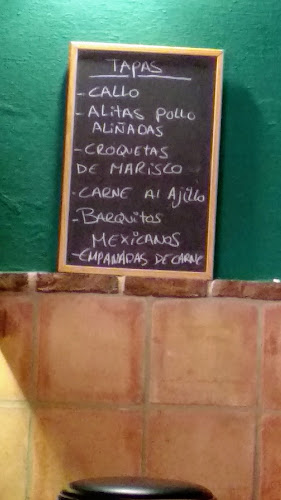 TAPAS
- CALLO
- ALITAS POLLO
ALIÑADAS
- CROQUETAS
DE MARISCO
- CARNE Al Ajillo
- BARQUITOS
MEXICANOS
- EMPANADAS DE CARNE